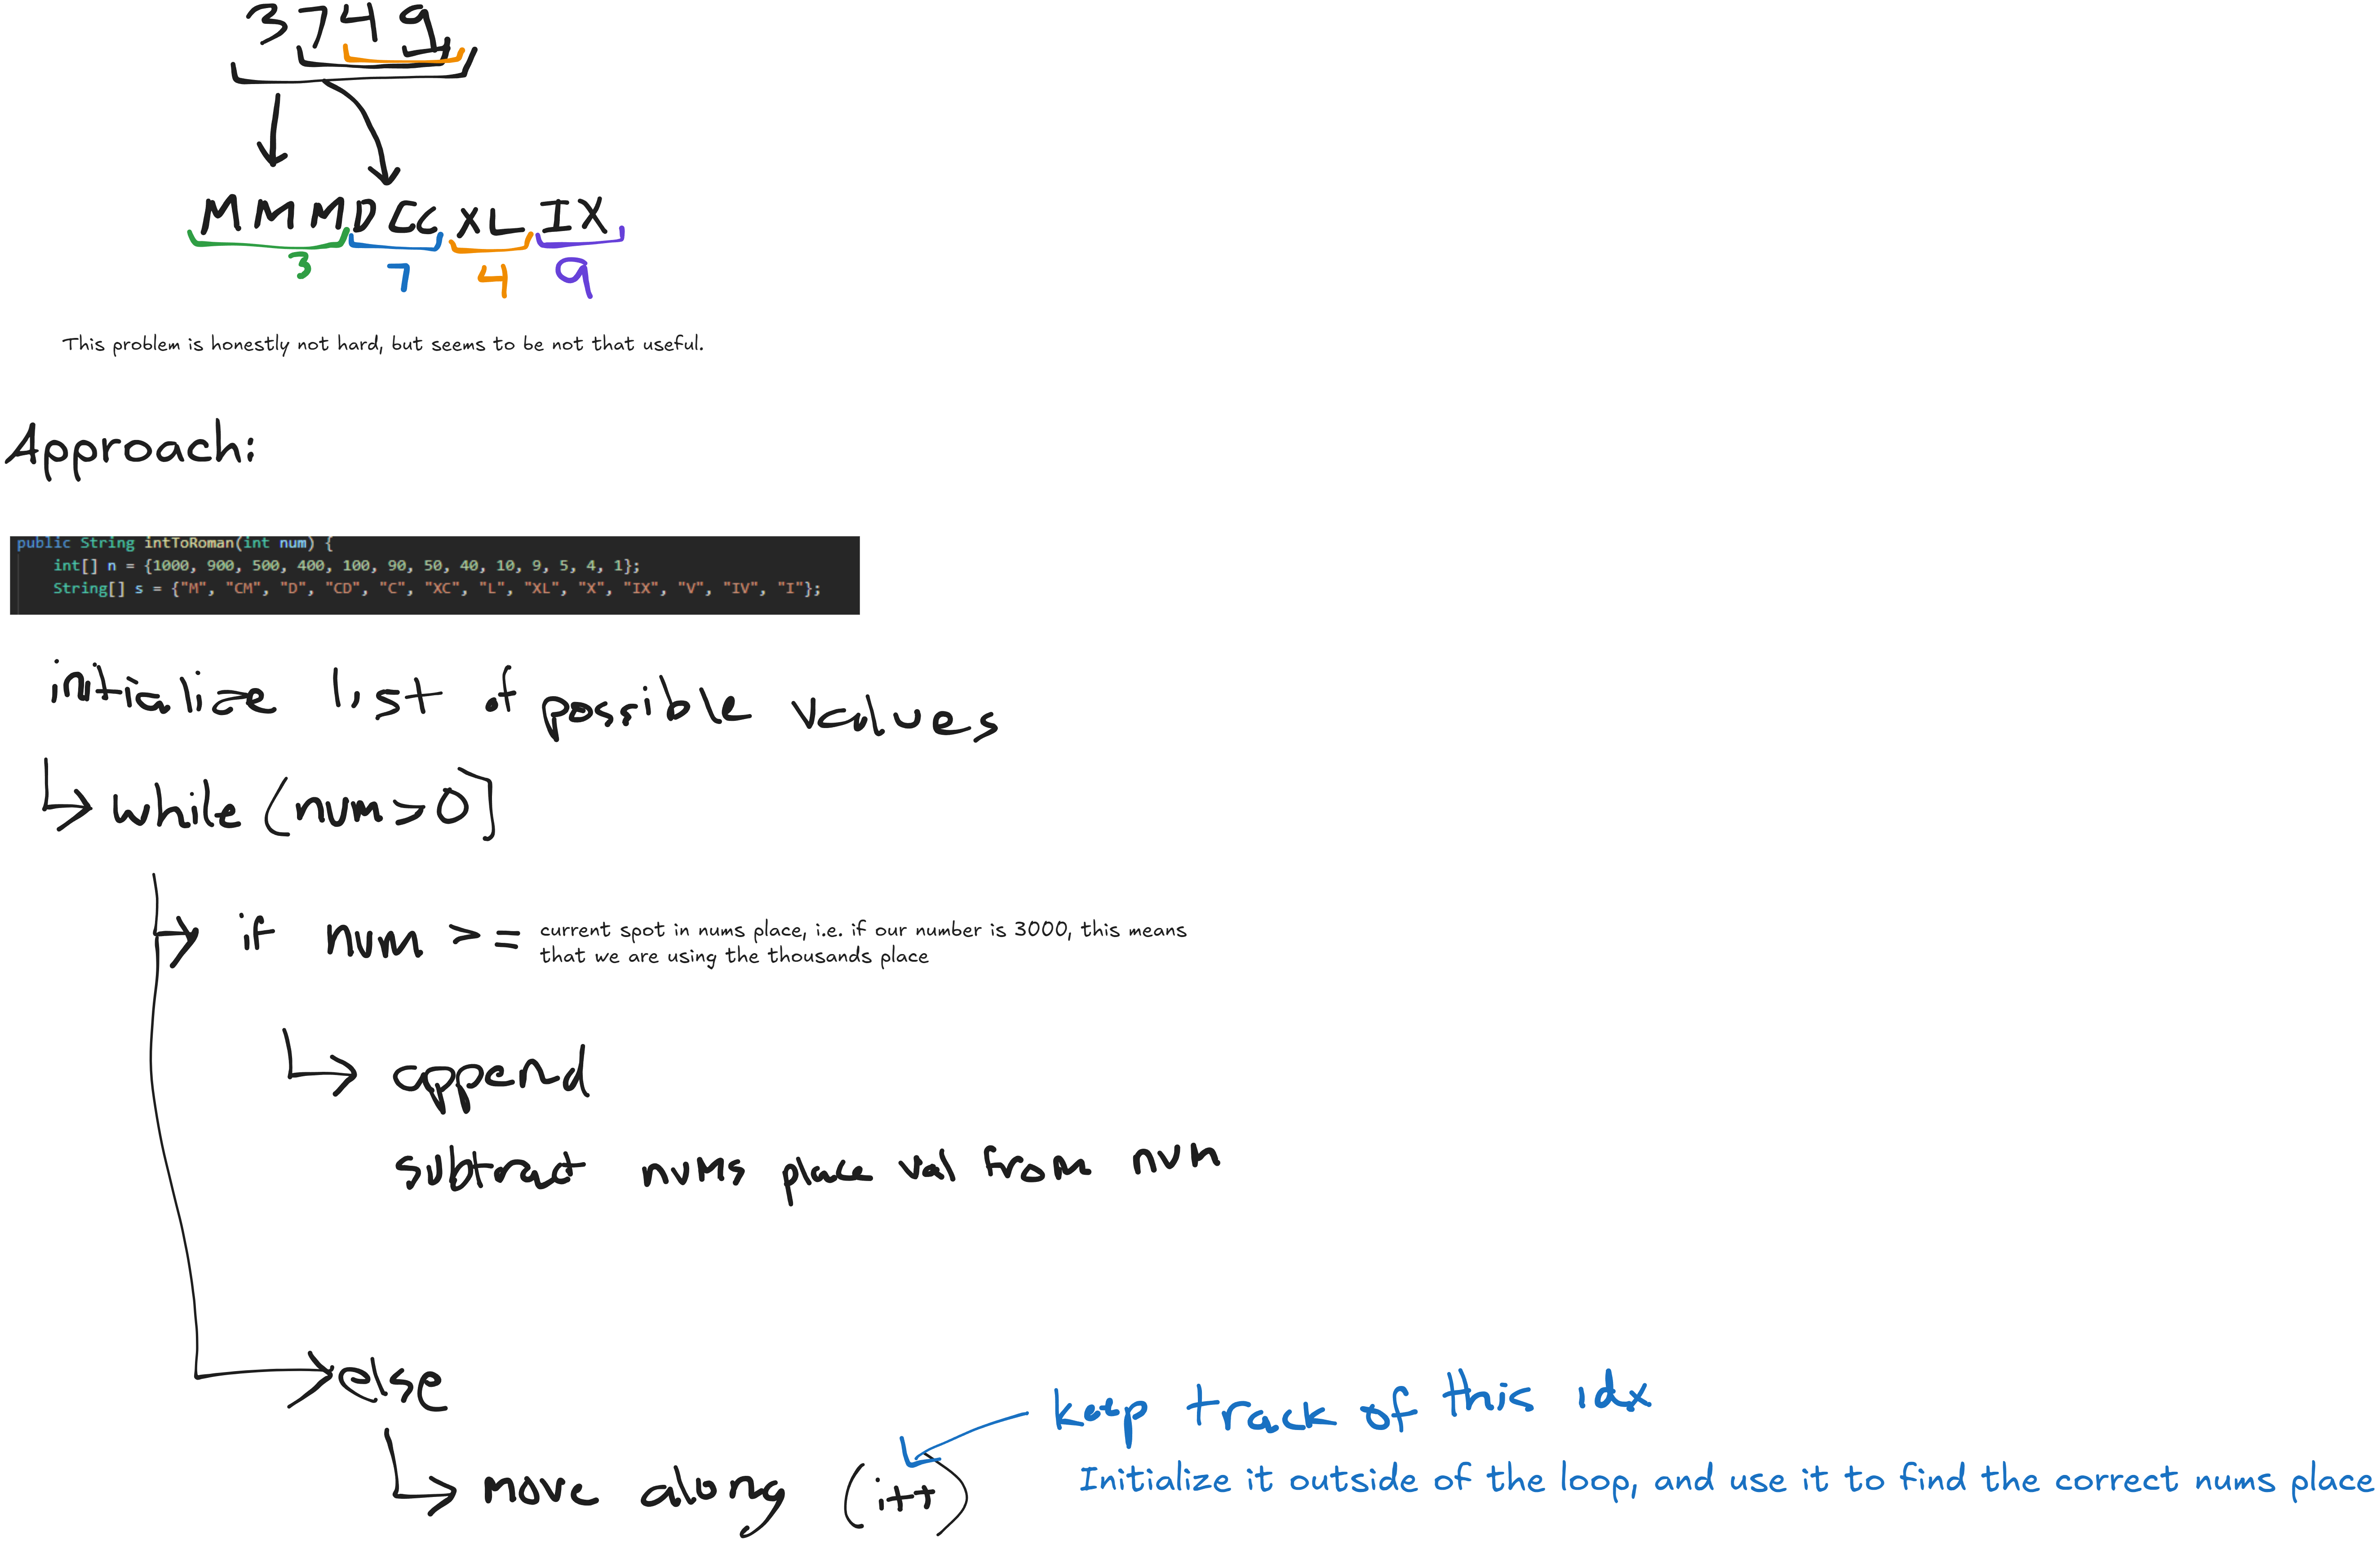 3749
MMMDCCXLIX
3 7 4 9
This problem is honestly not hard, but seems to be not that useful.
Approach:
public String intToRoman(int num) {
int[] n = {1000, 900, 500, 400, 100, 90, 50, 40, 10, 9, 5, 4, 1};
String[] s = {"M", "CM", "D", "CD", "C", "XC", "L", "XL", "X", "IX", "V", "IV", "I"};
initialize list of possible values
while (num>0)
if num >= current spot in nums place, i.e. if our number is 3000, this means
that we are using the thousands place
append
subtract nums place val from num
else
keep track of this idx
move along (i++)
Initialize it outside of the loop, and use it to find the correct nums place